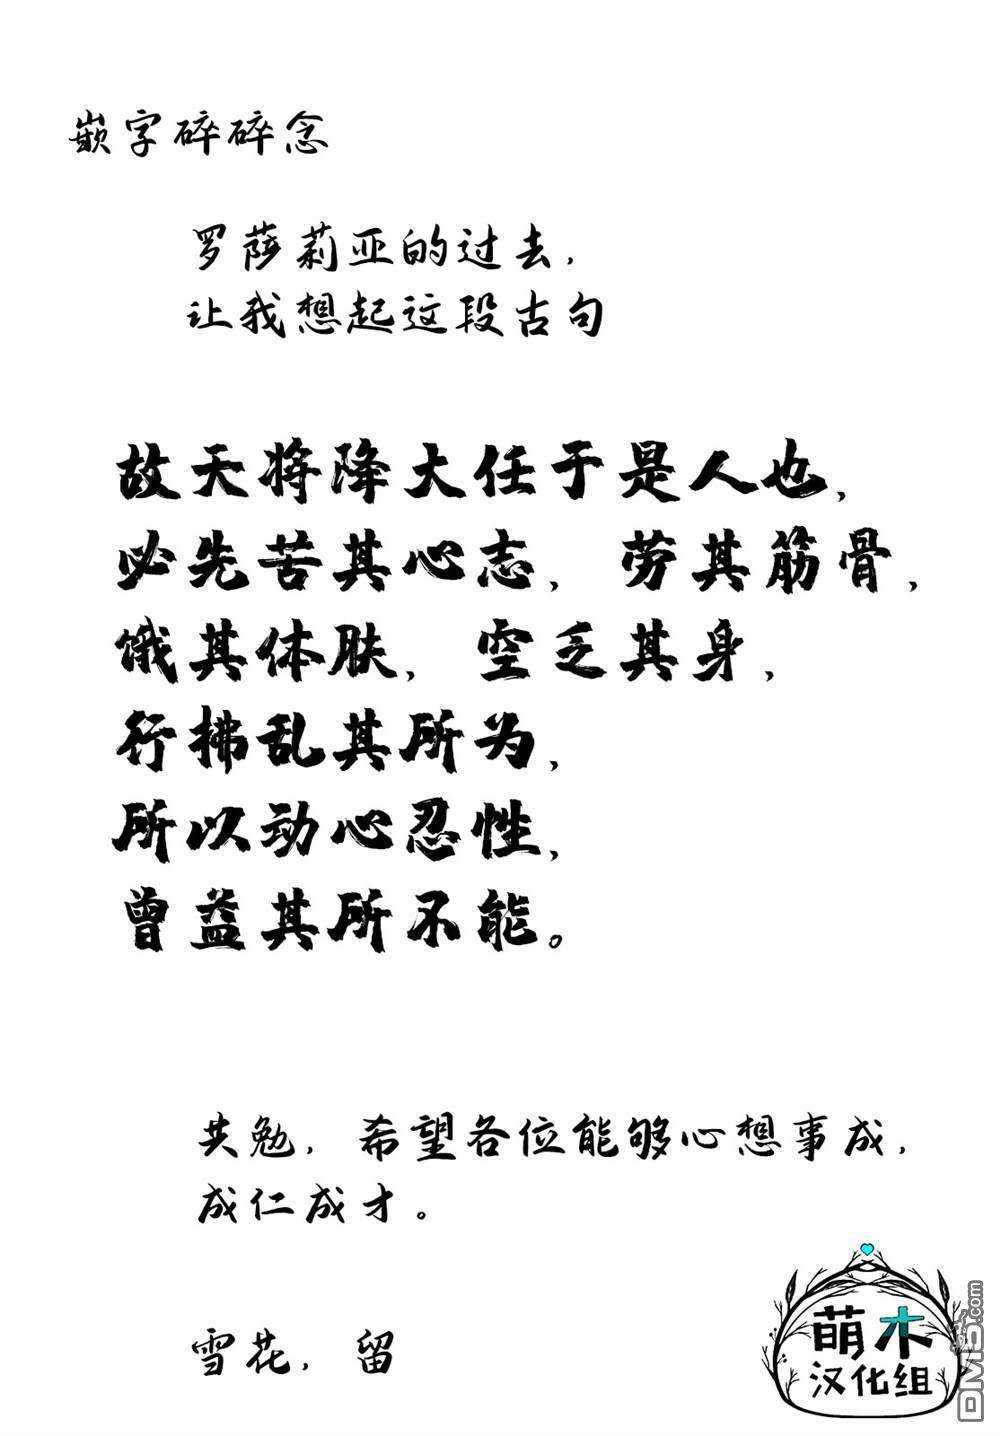 嵌字碎碎念
罗萨莉亚的过去，
让我想起这段古句
故天将降大任于是人也，
必先苦其心志，劳其筋骨，
饿其体肤，空乏其身，
行拂乱其所为，
所以动心忍性，
曾益其所不能。
共勉，希望各位能够心想事成，
成仁成才。
雪花，留
萌木
汉化组
DM5.com